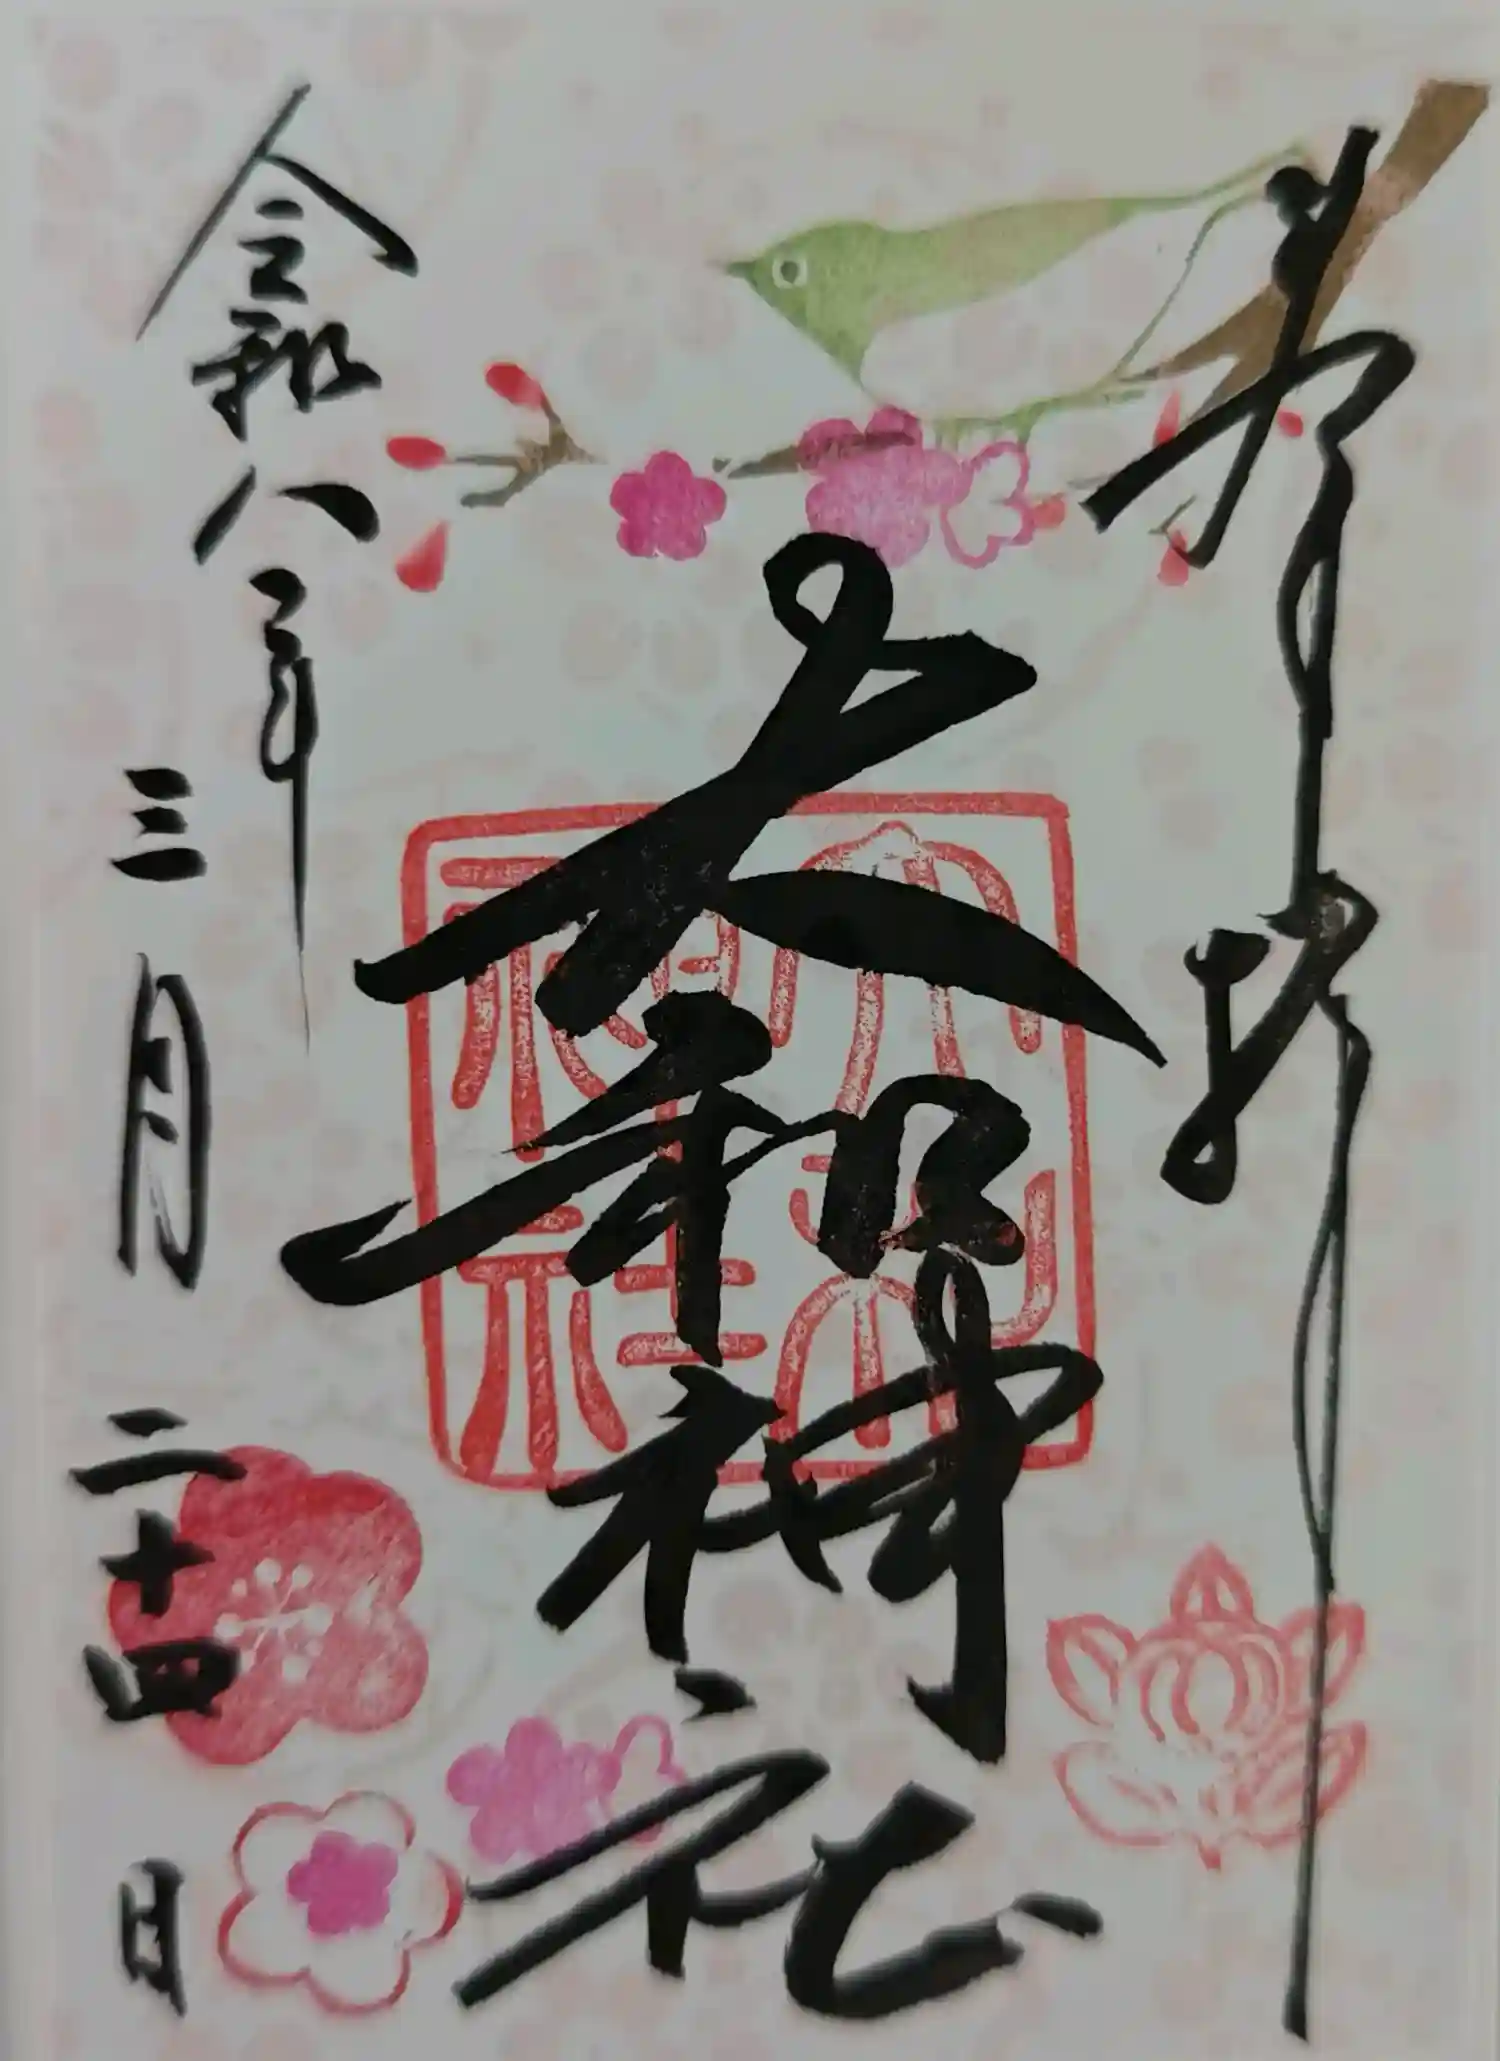 奉拝
大和神社
大和神社
令和八年
三月
二十四
日